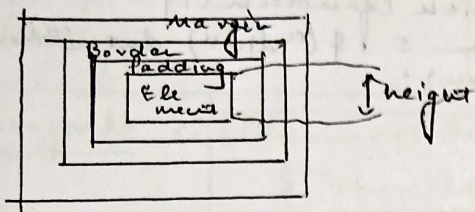 Margin
Border
Padding
Ele
ment
height